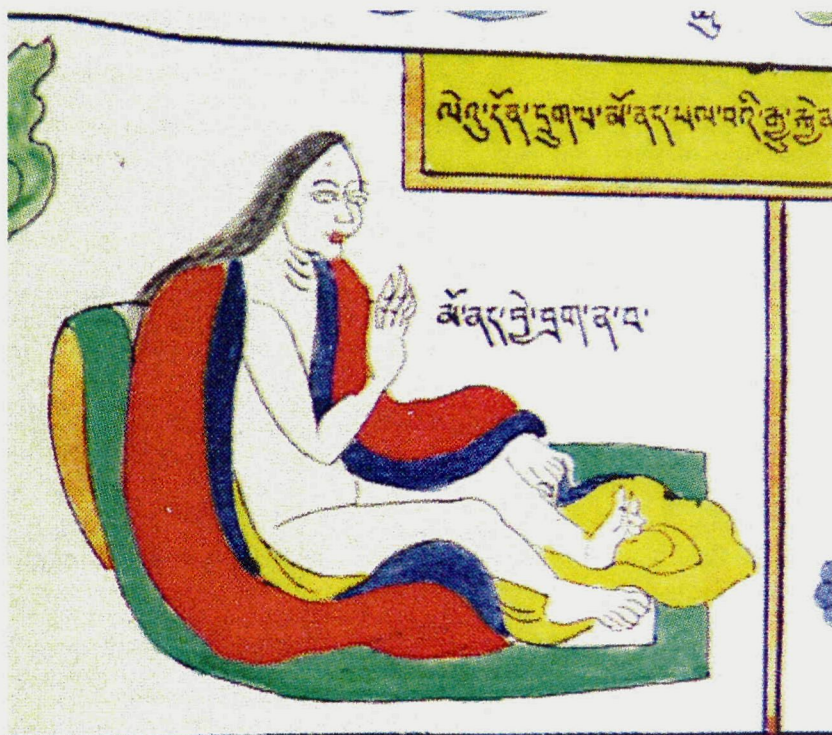 ལེའུ་དོན་དྲུག་པ་མོ་ནད་ཕལ་བའི་རྒྱུ་རྐྱེན
མོ་ནད་བྱེ་བྲག་ན་བ་